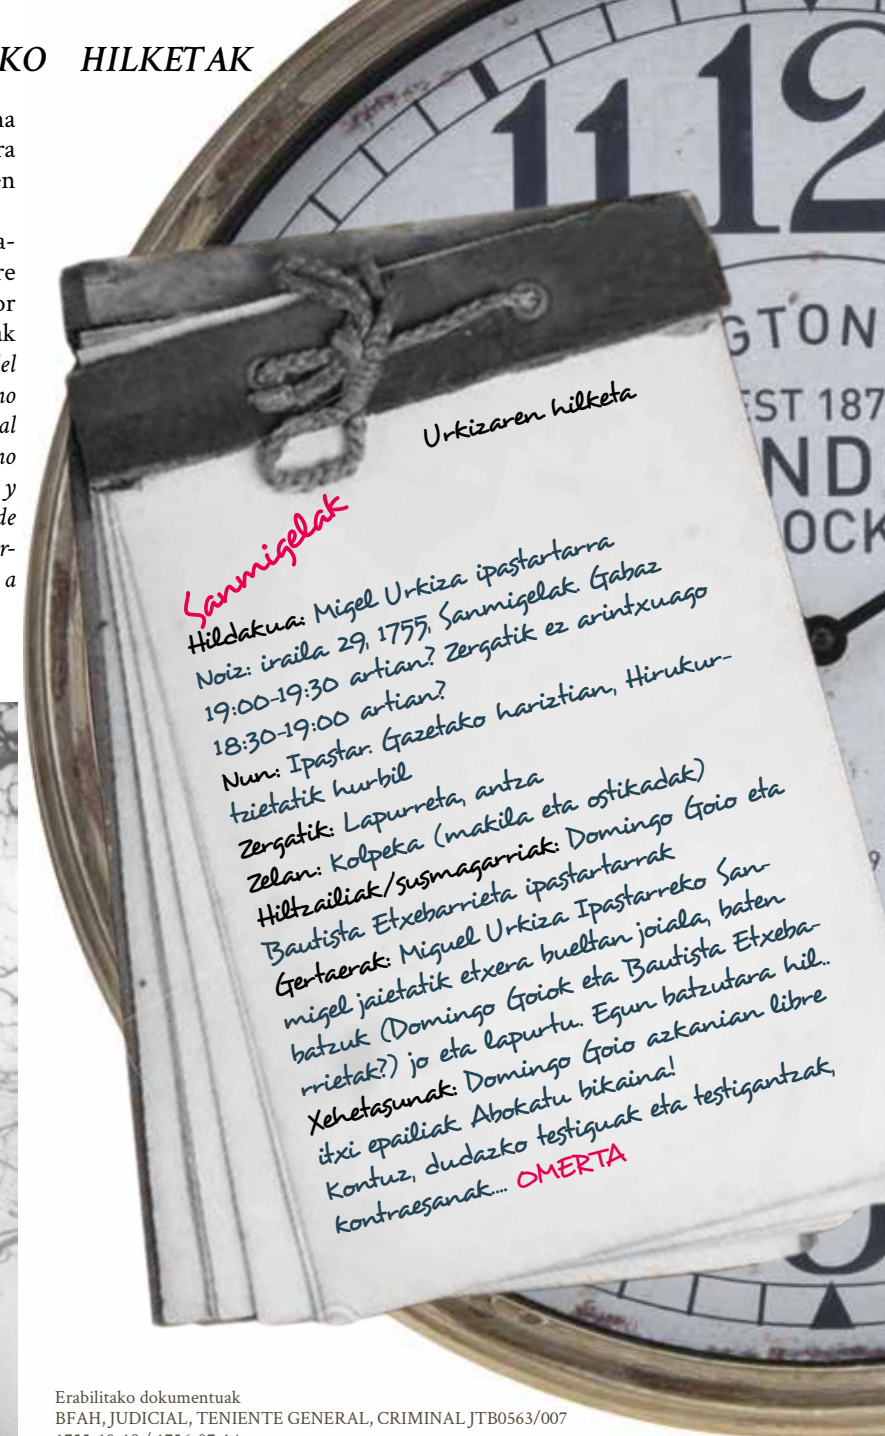 KO HILKETAK
na
ra
en
a-
re
or
ak
el
no
al
no
y
de
r-
a
11 12
GTON
EST 187
ND
OCK
9
Urkizaren hilketa
Sanmigelak
Hildakua: Migel Urkiza ipastartarra
Noiz: iraila 29, 1755, Sanmigelak. Gabaz
19:00-19:30 artian? Zergatik ez arintxuago
18:30-19:00 artian?
Nun: Ipastar. Gazetako hariztian, Hirukur-
tzietatik hurbil
Zergatik: Lapurreta, antza
Zelan: Kolpeka (makila eta ostikadak)
Hiltzailiak/susmagarriak: Domingo Goio eta
Bautista Etxebarrieta ipastartarrak
Gertaerak: Miguel Urkiza Ipastarreko San-
migel jaietatik etxera bueltan joiala, baten
batzuk (Domingo Goiok eta Bautista Etxeba-
rrietak?) jo eta lapurtu. Egun batzutara hil..
Xehetasunak: Domingo Goio azkanian libre
itxi epailiak. Abokatu bikaina!
Kontuz, dudazko testiguak eta testigantzak,
kontraesanak.... OMERTA
Erabilitako dokumentuak
BFAH, JUDICIAL, TENIENTE GENERAL, CRIMINAL JTB0563/007